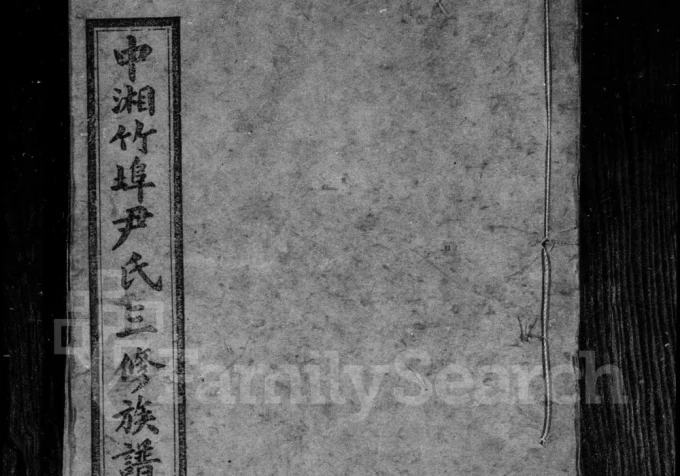 中湘竹埠尹氏三修族譜
FamilySearch